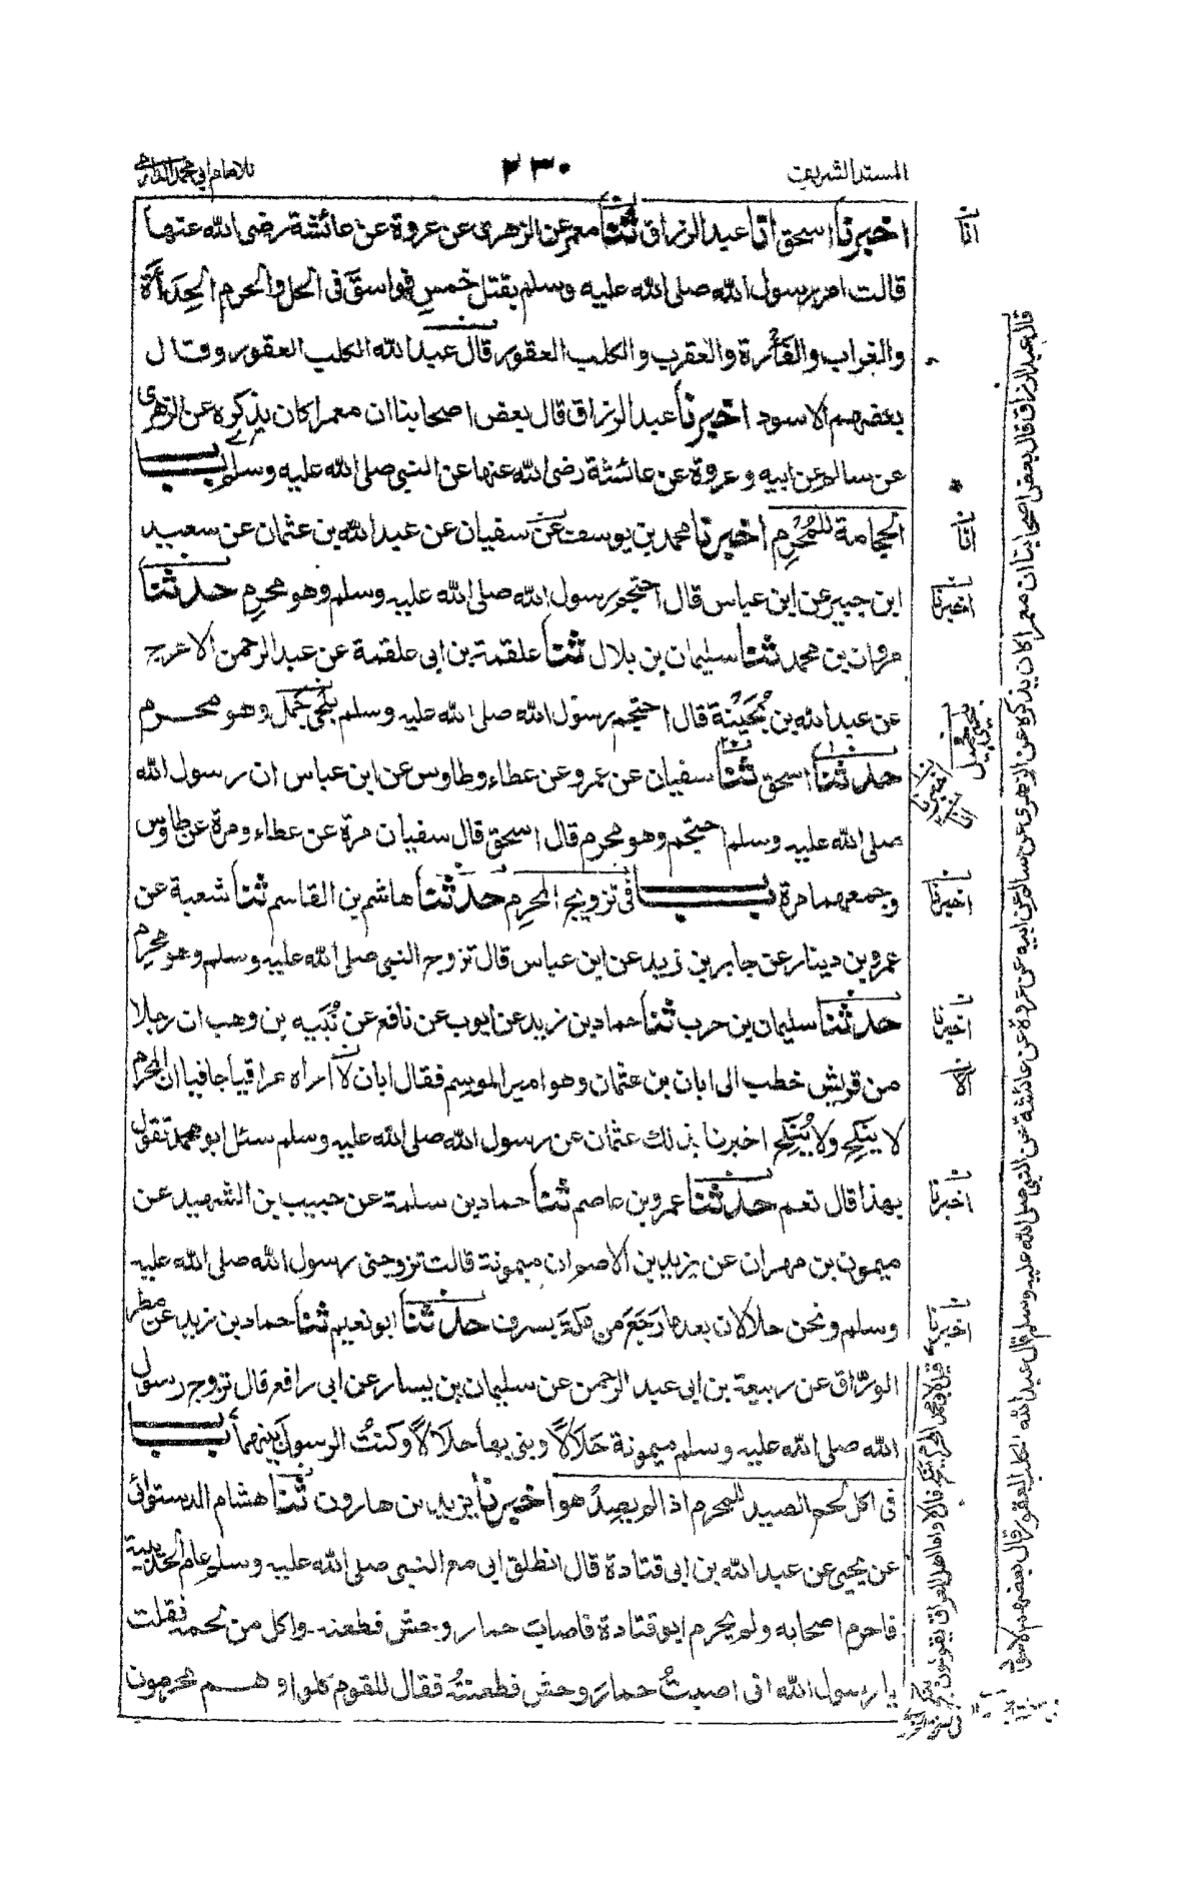 المسند الشريف ٢٣٠ للامام ابي محمد الدارمي
اخبرنا اسحق انا عبد الرزاق ثنا معمر عن الزهرى عن عروة عن عائشة رضى الله عنها
قالت امر رسول الله صلى الله عليه وسلم بقتل خمسِ فواسقَ فى الحل والحرم الحِدَأَة
والغراب والفَأْرة والعقرب والكلب العقور قال عبد الله الكلب العقور وقال
بعضهم الاسود اخبرنا عبد الرزاق قال بعض اصحابنا ان معمرا كان يذكره عن الزهرى
عن سالم عن ابيه وعروة عن عائشة رضى الله عنها عن النبي صلى الله عليه وسلم باب
الحجامة للمُحْرِمِ اخبرنا محمد بن يوسف عن سفيان عن عبد الله بن عثمان عن سعيد
ابن جبير عن ابن عباس قال احتجم رسول الله صلى الله عليه وسلم وهو محرِم حدثنا
مروان بن محمد ثنا سليمان بن بلال ثنا علقمة بن ابى علقمة عن عبد الرحمن الاعرج
عن عبد الله بن بُحَيْنة قال احتجم رسول الله صلى الله عليه وسلم بلَحْي جمل وهو محرم
حدثنا اسحق ثنا سفيان عن عمرو عن عطاء وطاوس عن ابن عباس ان رسول الله
صلى الله عليه وسلم احتجم وهو محرم قال اسحق قال سفيان مرة عن عطاء ومرة عن طاوس
وجمعهما مرة باب فى تزويج المحرِم حدثنا هاشم بن القاسم ثنا شعبة عن
عمرو بن دينار عن جابر بن زيد عن ابن عباس قال تزوج النبي صلى الله عليه وسلم وهو محرِم
حدثنا سليمان بن حرب ثنا حماد بن زيد عن ايوب عن نافع عن نُبَيه بن وهب ان رجلا
من قريش خطب الى ابان بن عثمان وهو امير الموسم فقال ابان لا اراه عراقيا جافيا ان المحرم
لا يَنكِح ولا يُنكِح اخبرنا بذلك عثمان عن رسول الله صلى الله عليه وسلم سئل ابو محمد تقول
بهذا قال نعم حدثنا عمرو بن عاصم ثنا حماد بن سلمة عن حبيب بن الشهيد عن
ميمون بن مهران عن يزيد بن الاصم ان ميمونة قالت تزوجنى رسول الله صلى الله عليه
وسلم ونحن حلالان بعد ما رَجَعَ من مكة بسرف حدثنا ابو نعيم ثنا حماد بن زيد عن مطر
الورّاق عن ربيعة بن ابى عبد الرحمن عن سليمان بن يسار عن ابى رافع قال تزوج رسول
الله صلى الله عليه وسلم ميمونة حَلَالًا وبنى بها حلَالًا وكنتُ الرسولَ بينهما باب
فى اكل لحم الصيد للمحرم اذا لم يصِدْ هو اخبرنا يزيد بن هارون ثنا هشام الدستوائى
عن يحيى عن عبد الله بن ابى قتادة قال انطلق ابى مع النبي صلى الله عليه وسلم عام الحديبية
فاحرم اصحابه ولم يحرم ابو قتادة فاصاب حمار وحش فطعنه واكل من لحمه فقلت
يا رسول الله انى اصبتُ حمارَ وحش فطعنتُه فقال للقوم كلوا وهم محرمون
انا
انا
اخبرنا
اخبرنا
اخبرنا
اخبرنا
اخبرنا
اخبرنا
قال عبد الرزاق قال بعض اصحابنا ان معمرا كان يذكره عن الزهرى عن سالم عن ابيه عن عروة عن عائشة عن النبي صلى الله عليه وسلم قال عبد الله الكلب العقور قال بعضهم الاسود